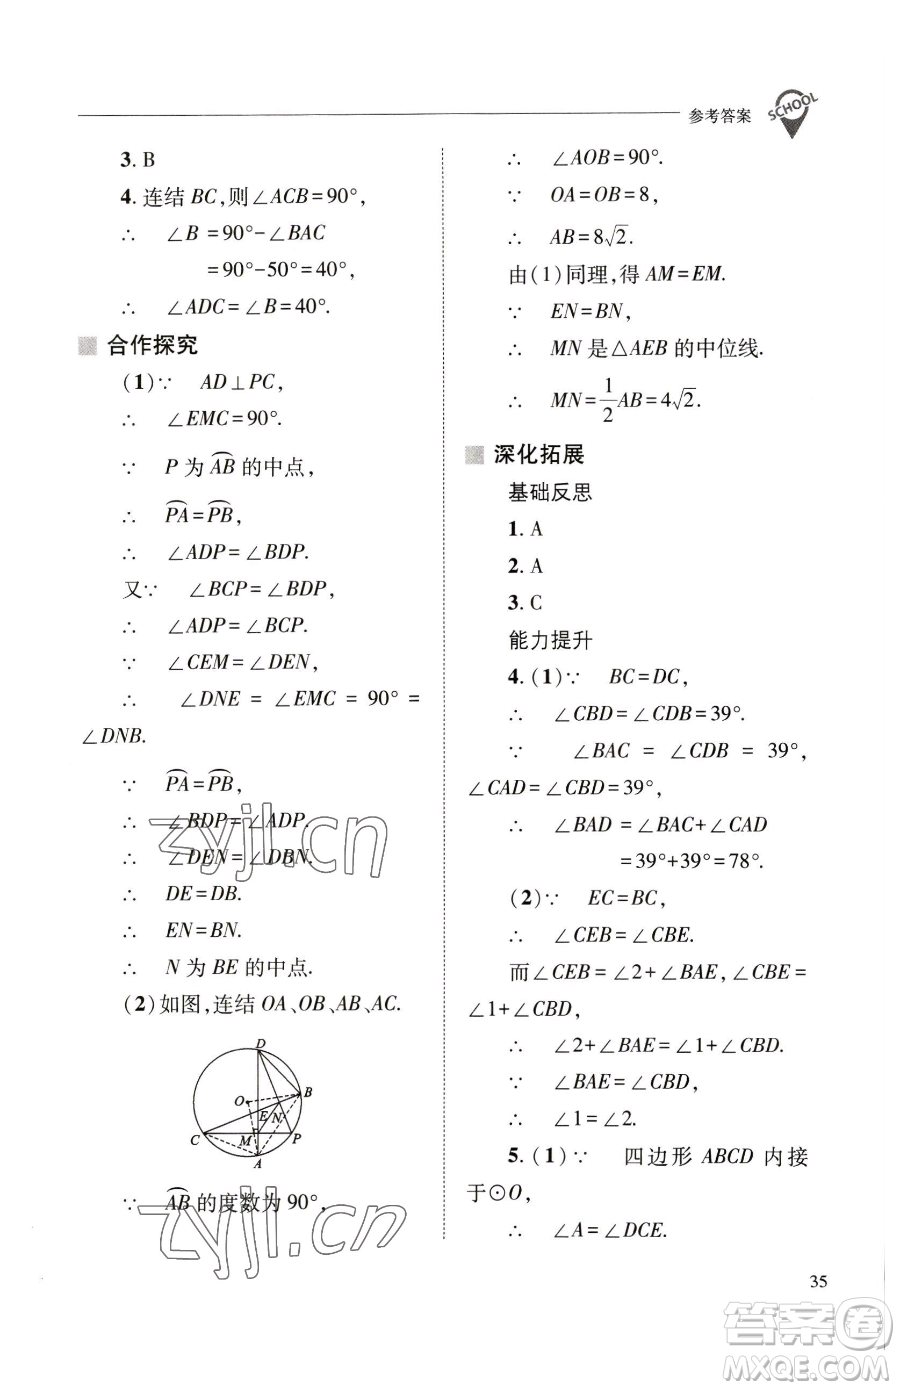 参考答案
SCHOOL
3. B
4. 连结 BC,则∠ACB=90°,
∴ ∠B=90°-∠BAC
=90°-50°=40°,
∴ ∠ADC=∠B=40°.
合作探究
(1)∵ AD⊥PC,
∴ ∠EMC=90°.
∵ P 为 \overset{\frown}{AB} 的中点,
∴ \overset{\frown}{PA}=\overset{\frown}{PB},
∴ ∠ADP=∠BDP.
又∵ ∠BCP=∠BDP,
∴ ∠ADP=∠BCP.
∵ ∠CEM=∠DEN,
∴ ∠DNE = ∠EMC = 90° =
∠DNB.
∵ \overset{\frown}{PA}=\overset{\frown}{PB},
∴ ∠BDP=∠ADP.
∴ ∠DEN=∠DBN.
∴ DE=DB.
∴ EN=BN.
∴ N 为 BE 的中点.
(2)如图,连结 OA、OB、AB、AC.
D
O
B
E
N
C
M
P
A
∵ \overset{\frown}{AB} 的度数为 90°,
∴ ∠AOB=90°.
∵ OA=OB=8,
∴ AB=8√2.
由(1)同理,得 AM=EM.
∵ EN=BN,
∴ MN 是△AEB 的中位线.
∴ MN=\frac{1}{2}AB=4√2.
深化拓展
基础反思
1. A
2. A
3. C
能力提升
4. (1)∵ BC=DC,
∴ ∠CBD=∠CDB=39°.
∵ ∠BAC = ∠CDB = 39°,
∠CAD=∠CBD=39°,
∴ ∠BAD =∠BAC+∠CAD
=39°+39°=78°.
(2)∵ EC=BC,
∴ ∠CEB=∠CBE.
而∠CEB=∠2+∠BAE,∠CBE=
∠1+∠CBD,
∴ ∠2+∠BAE=∠1+∠CBD.
∵ ∠BAE=∠CBD,
∴ ∠1=∠2.
5. (1)∵ 四边形 ABCD 内接
于⊙O,
∴ ∠A=∠DCE.
35
zyjl.cn
zyjl.cn
答案圈
MXQE.COM